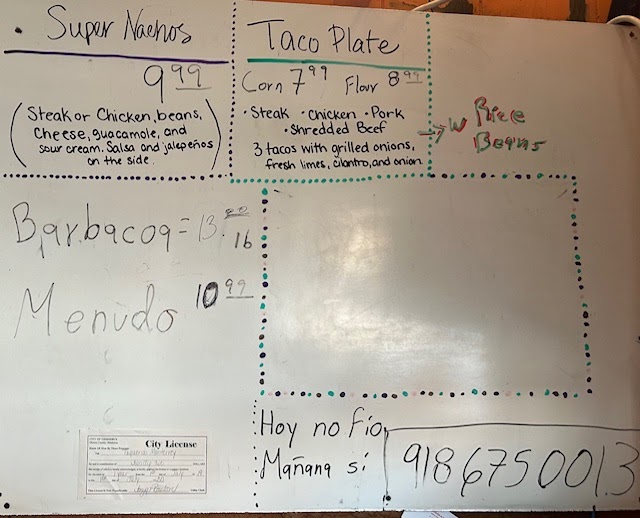 Super Nachos
9 99
(Steak or Chicken, beans,
Cheese, guacamole, and
sour cream. Salsa and jalepeños
on the side.)
Taco Plate
Corn 7 99 Flour 8 99
· Steak · Chicken · Pork
· Shredded Beef
3 tacos with grilled onions,
fresh limes, cilantro, and onion
→ W Rice
Beans
Barbacoa = 13.
16
Menudo 10 99
City License
Hoy no Fío
Mañana sí
918 675 0013